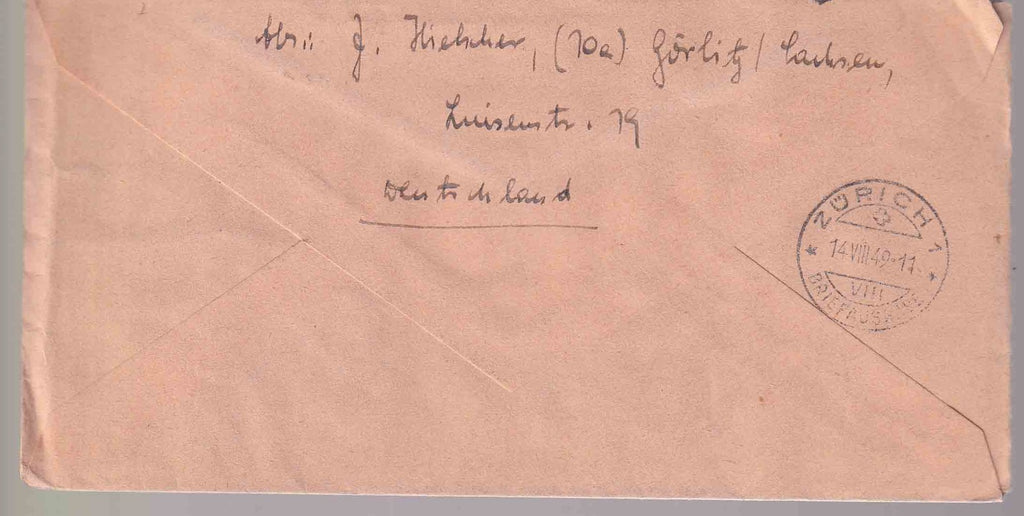 Abs.: J. Hielscher, (10a) Görlitz/Sachsen,
Luisenstr. 19
Deutschland
ZÜRICH 1
14.VIII.49-11
VIII